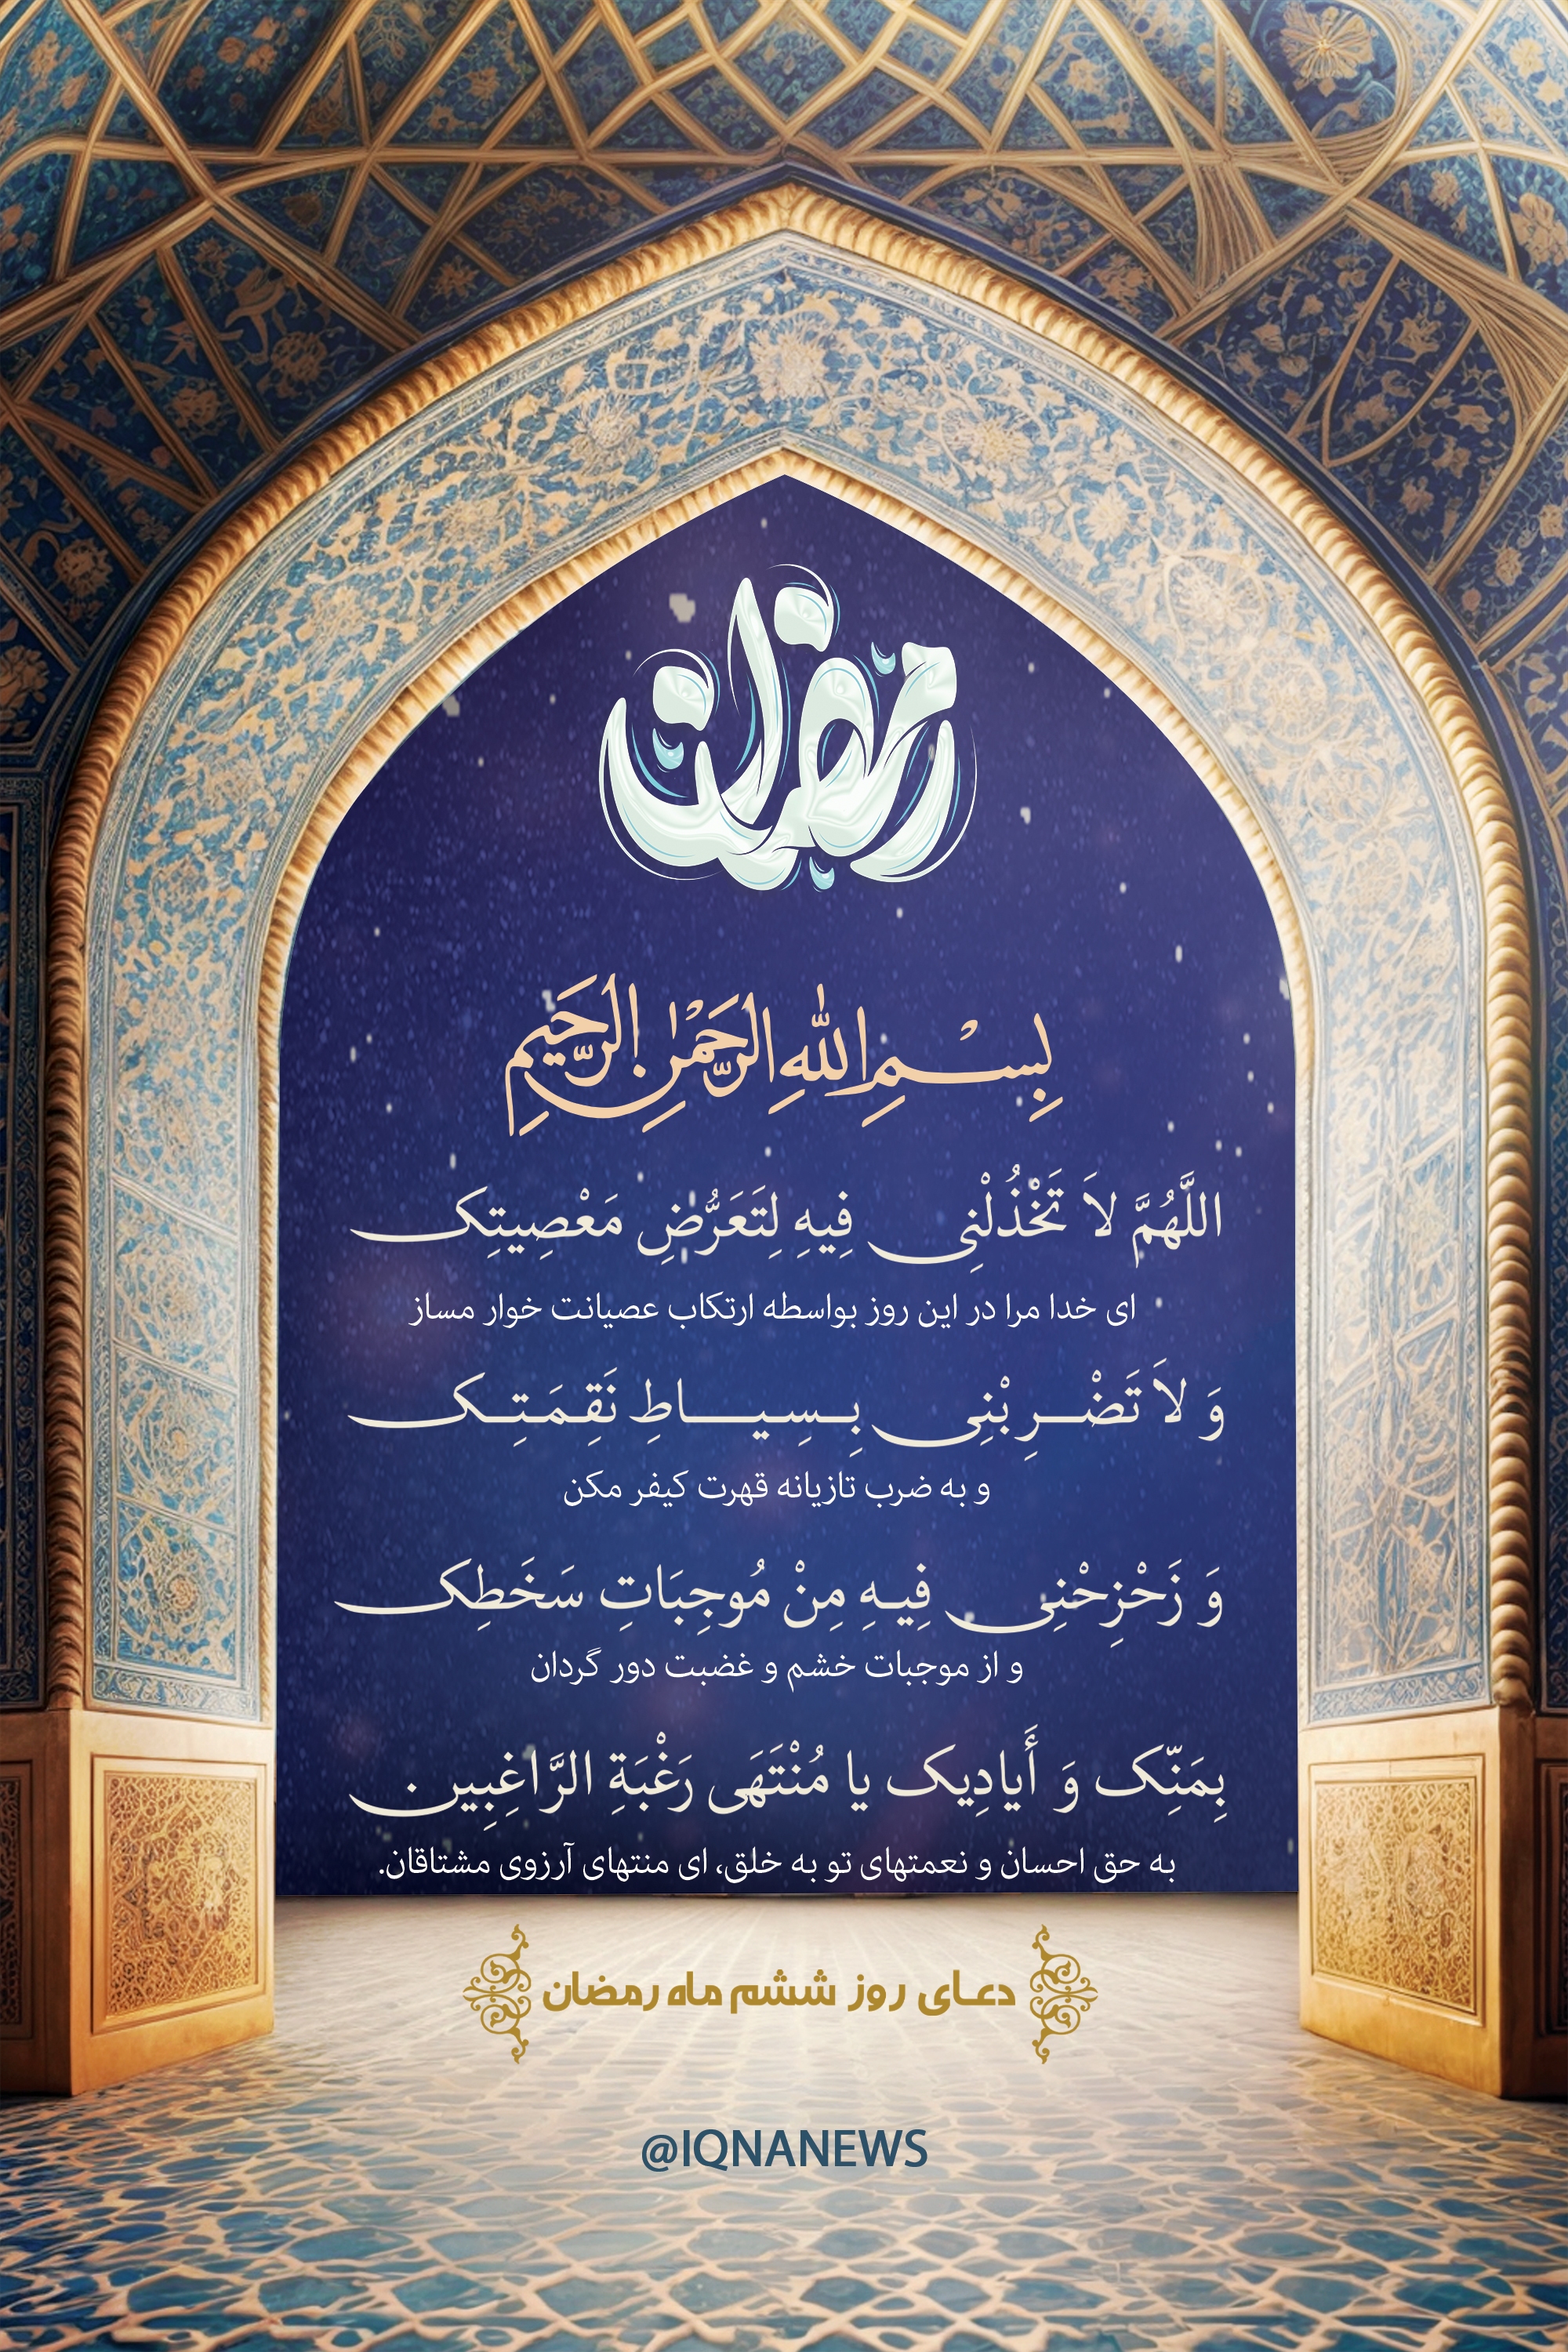 رمضان
بِسْمِ اللهِ الرَّحْمٰنِ الرَّحِیمِ
اللَّهُمَّ لاَ تَخْذُلْنِی فِیهِ لِتَعَرُّضِ مَعْصِیتِک
ای خدا مرا در این روز بواسطه ارتکاب عصیانت خوار مساز
وَ لاَ تَضْرِبْنِی بِسِیَاطِ نَقِمَتِک
و به ضرب تازیانه قهرت کیفر مکن
وَ زَحْزِحْنِی فِیهِ مِنْ مُوجِبَاتِ سَخَطِک
و از موجبات خشم و غضبت دور گردان
بِمَنِّک وَ أَیادِیک یا مُنْتَهَی رَغْبَةِ الرَّاغِبِین.
به حق احسان و نعمتهای تو به خلق، ای منتهای آرزوی مشتاقان.
دعای روز ششم ماه رمضان
@IQNANEWS